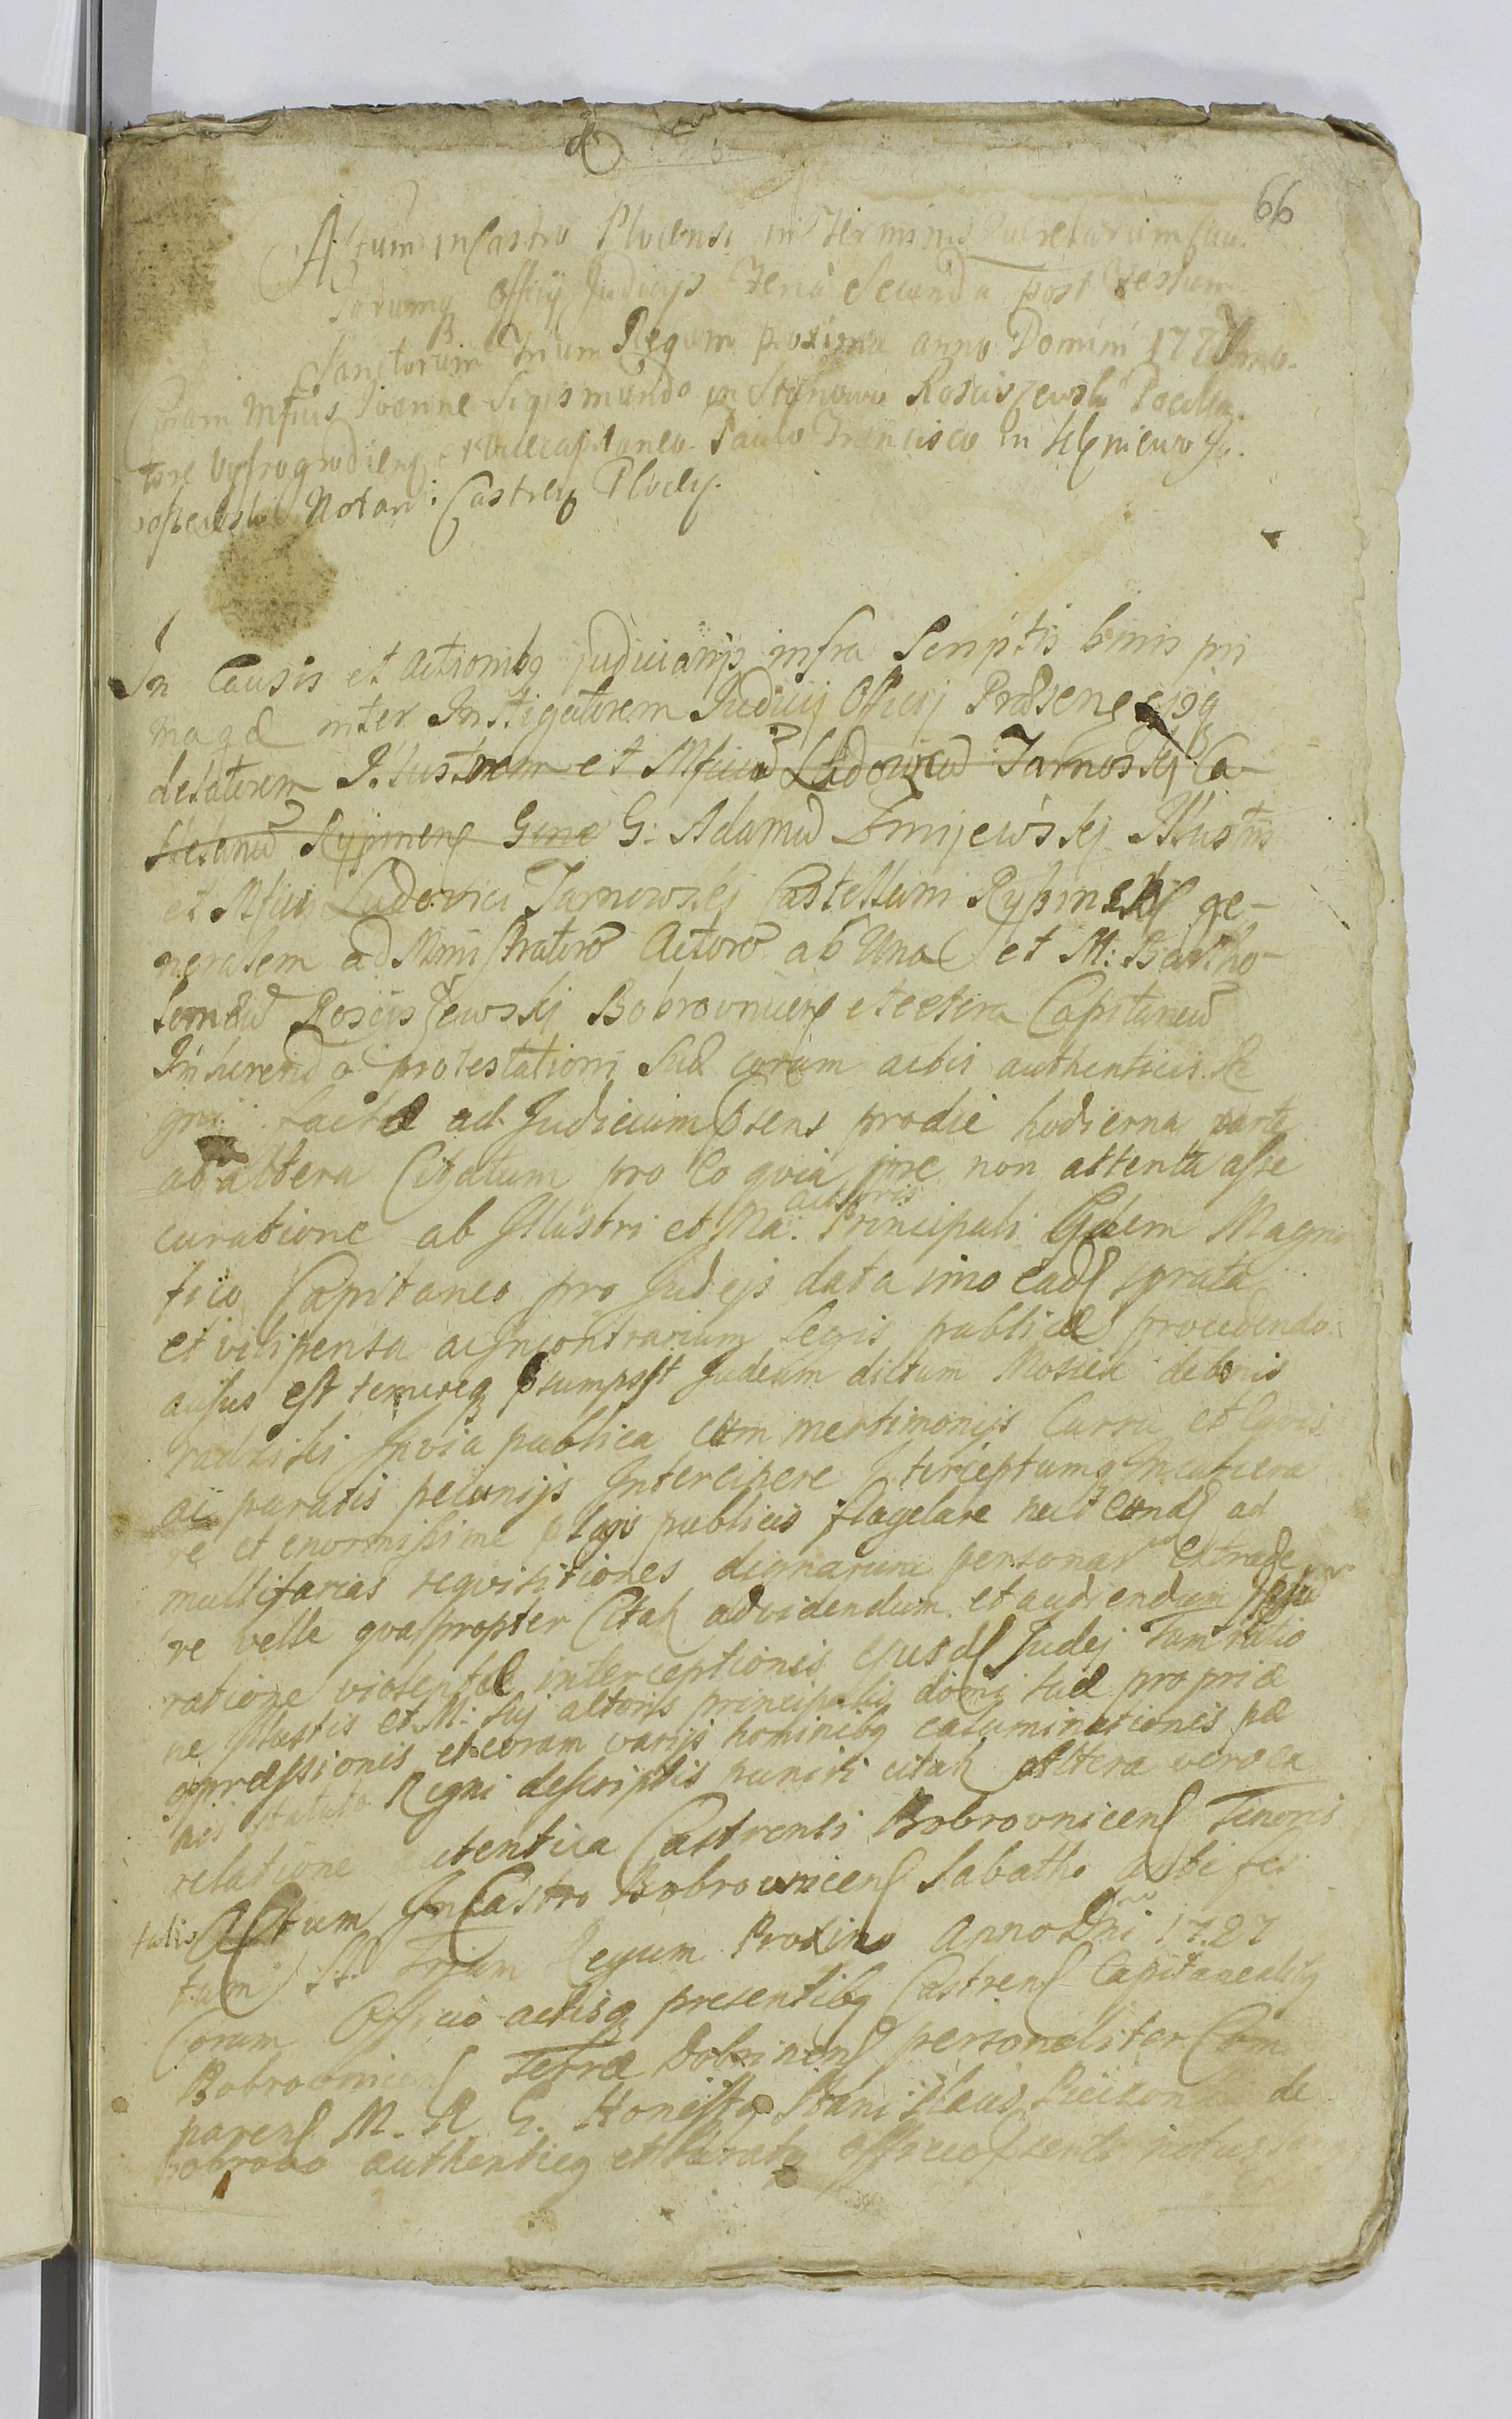 66
Actum in Castro Plocensi in Terminis
Judicijs Feria Secunda post Festum
Sanctorum Trium Regum proximo anno Domini 1727mo
Coram Mficis Joanne Sigismundo in Rosciszewski Pocilla-
tore Vyssogrodiens et Vicecapitaneo Paulo Francisco in
Notari: Castren Plocen.
In Causis et Actionibq judiciarijs infra Scriptis binis pri
maqæ inter Instigatorem Judicij Officij Præsens ejsq
delatorem Illustrem et Mficu Ludovicu Tarnoskj Ca-
stelanu Rypinens Gene G: Adamu Zmijewskj Illustris
et Mfici Ludovici Tarnowskj Castellani Rypinens ge-
neralem adMinistratore Actore ab Una et M: Bartho-
lomæu Rosciszewskj Bobrovnicens etcetera Capitaneu
Inhærendo protestationi Suæ coram actis authenticis Re
gni factæ ad Judicium psens prodie hodierna parte
ab altera Citatum pro eo quia ipse non attenta asse
curatione ab Illustri et Ma: actoris Principali Eidem Magni
fico Capitaneo pro Judejs data imo eads sprata
et vilipensa ac Incontrarium Legis publicæ procedendo
ausus est temereq psumpsit Judeum dictum Mosiek debonis
In via publica cum mertimonijs Curru et Equis
ac paratis pecunijs Intercipere Interceptumq Incatiera
re et enormissime plagis publicis flagelare nec eunds ad
multifarias reqvisitiones dignarum personar extrade
re velle qvapropter Citats advidendum et audiendum
ratione violentæ interceptionis ejusds Judej tum ratio
ne Illustis et M: suj actoris principalis domi suæ propriæ
opræssionis et coram varijs hominibq caluminationis pæ
nis statuto Regni descriptis puniri citats Altera vero ex
relatione autentica Castrensi Bobrovnicens Tenoris
talis Actum In Castro Bobrovnicens Sabatho ante fes
tum SS. Trium Regum Proximo Anno Dni 1727
Coram Officio actisq presentibq Castrens Capitanealibq
Bobrovnicens Terræ Dobrinens personaliter Com
parens M. R. G. Honestq Stanislaus de
Bobrovo authenticq et juratq officio psenti notus